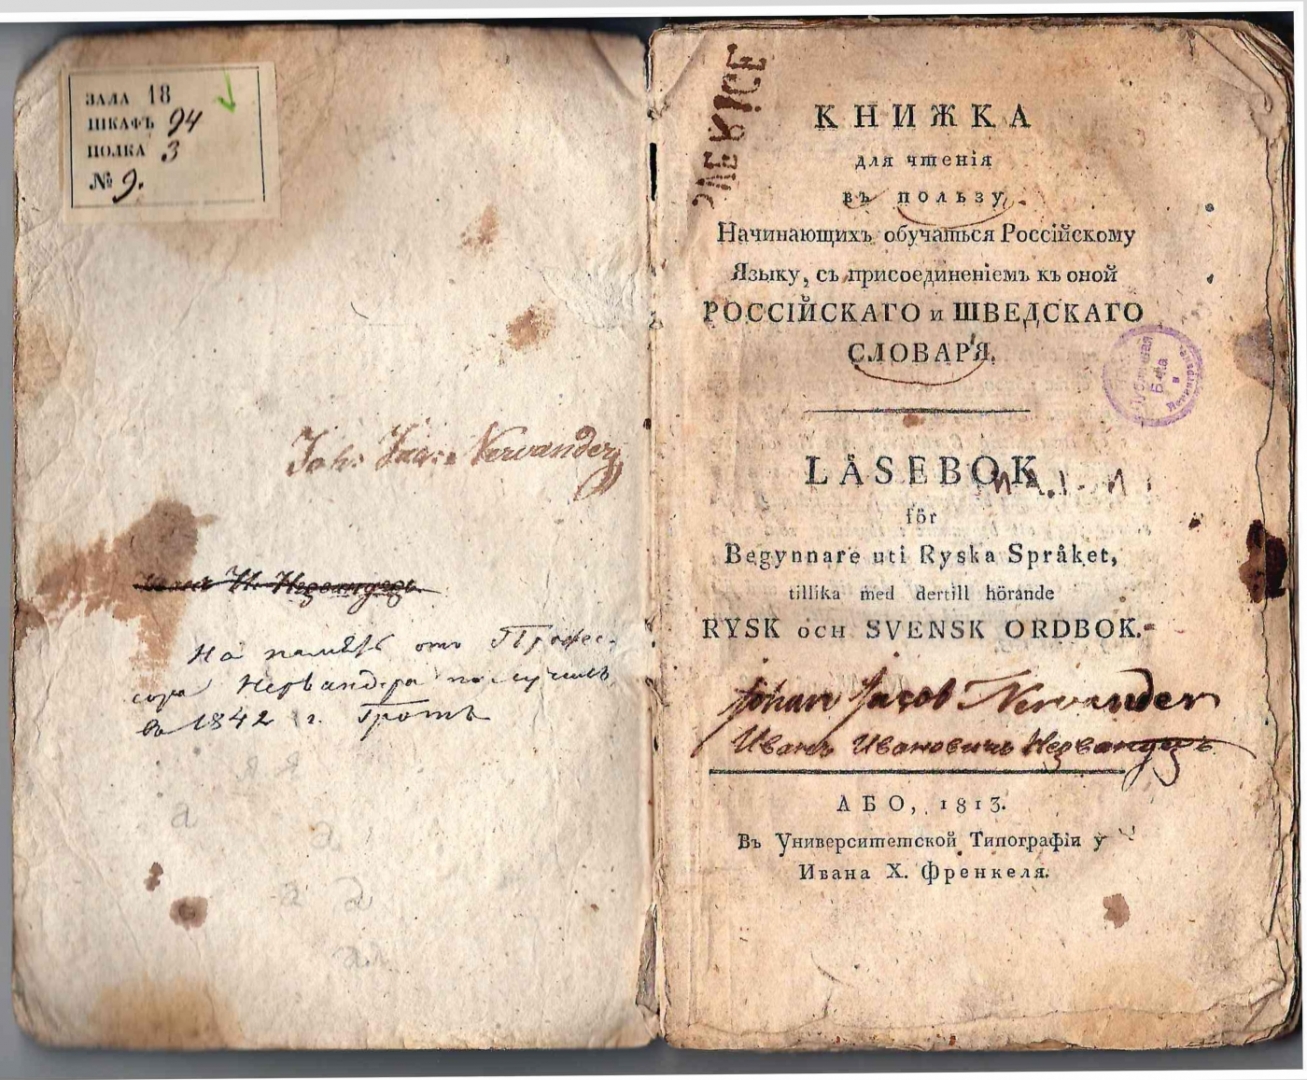 ЗАЛА 18
ШКАФЪ 94
ПОЛКА 3
№ 9.
Joh: Jac: Nervander
На память отъ Профес-
сора Нервандера получилъ
въ 1842 г. Гротъ
КНИЖКА
для чтенія
въ пользу
Начинающихъ обучаться Россійскому
Языку, съ присоединеніемъ къ оной
РОССІЙСКАГО и ШВЕДСКАГО
СЛОВАРЯ.
LÄSEBOK
för
Begynnare uti Ryska Språket,
tillika med dertill hörande
RYSK OCH SVENSK ORDBOK.
Johan Jacob Nervander
Иванъ Ивановичъ Нервандеръ
АБО, 1813.
Въ Университетской Типографіи у
Ивана Х. Френкеля.